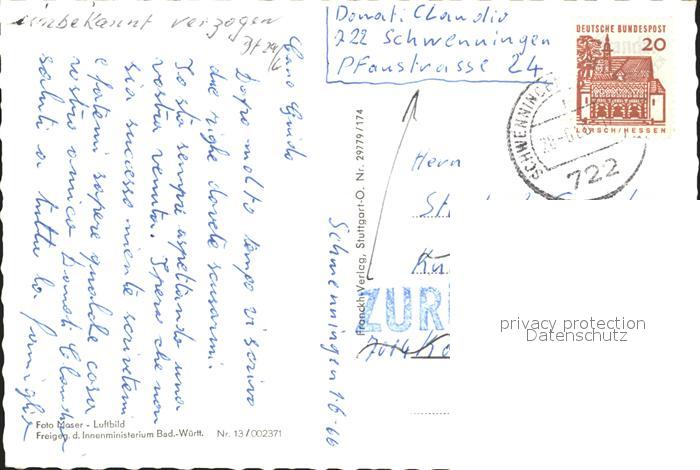 unbekannt verzogen
Donati Claudio
722 Schwenningen
Pfaustrasse 24
DEUTSCHE BUNDESPOST
20
LORSCH/HESSEN
SCHWENNINGEN
722
Caro Guido
Dopo molto tempo vi scrivo
due righe dovete scusarmi.
Io sto sempre aspettando una
vostra venuta. Spero che non
sia successo niente scrivetemi
e fatemi sapere qualche cosa
vostro amico Donati Claudio
saluti a tutta la famiglia
Schwenningen 1-6-66
Franckh-Verlag, Stuttgart-O. Nr. 29779/174
Herrn
St
ZUR
7014 Ko
privacy protection
Datenschutz
Foto Moser - Luftbild
Freigeg. d. Innenministerium Bad.-Württ. Nr. 13/002371